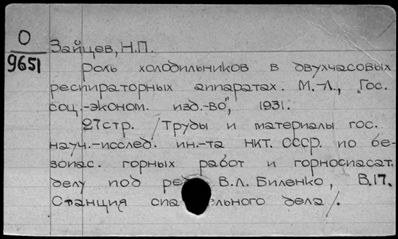 О
9651
Зайцев, Н.П.
Роль холодильников в двухчасовых
респираторных аппаратах. М.-Л., "Гос.
соц.-эконом. изд.-во", 1931.
27стр. /Труды и материалы гос.
науч.-исслед. ин.-та НКТ. СССР. по бе-
зопас. горных работ и горноспасат.
делу под ред. В.Л. Биленко, В.17.
Станция спа льного дела/.